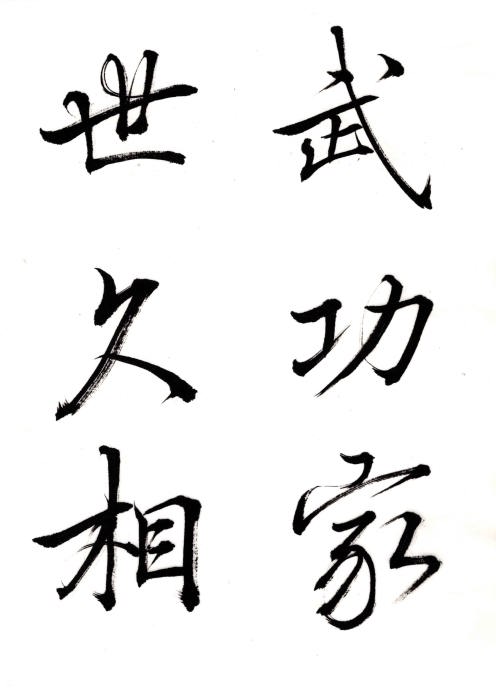 武功家
世久相